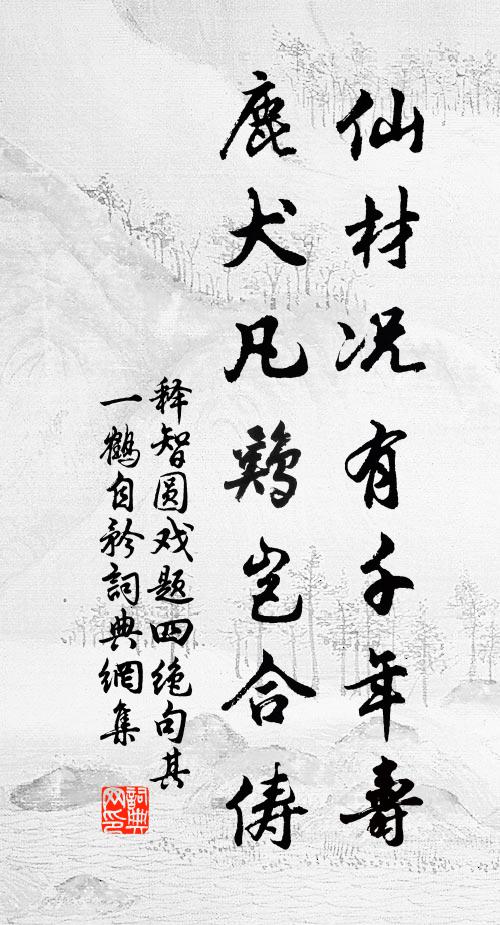 仙材况有千年壽
鹿犬凡鷄岂合俦
释智圆戏题四绝句其
一鶴自矜詞典網集
詞典
网印